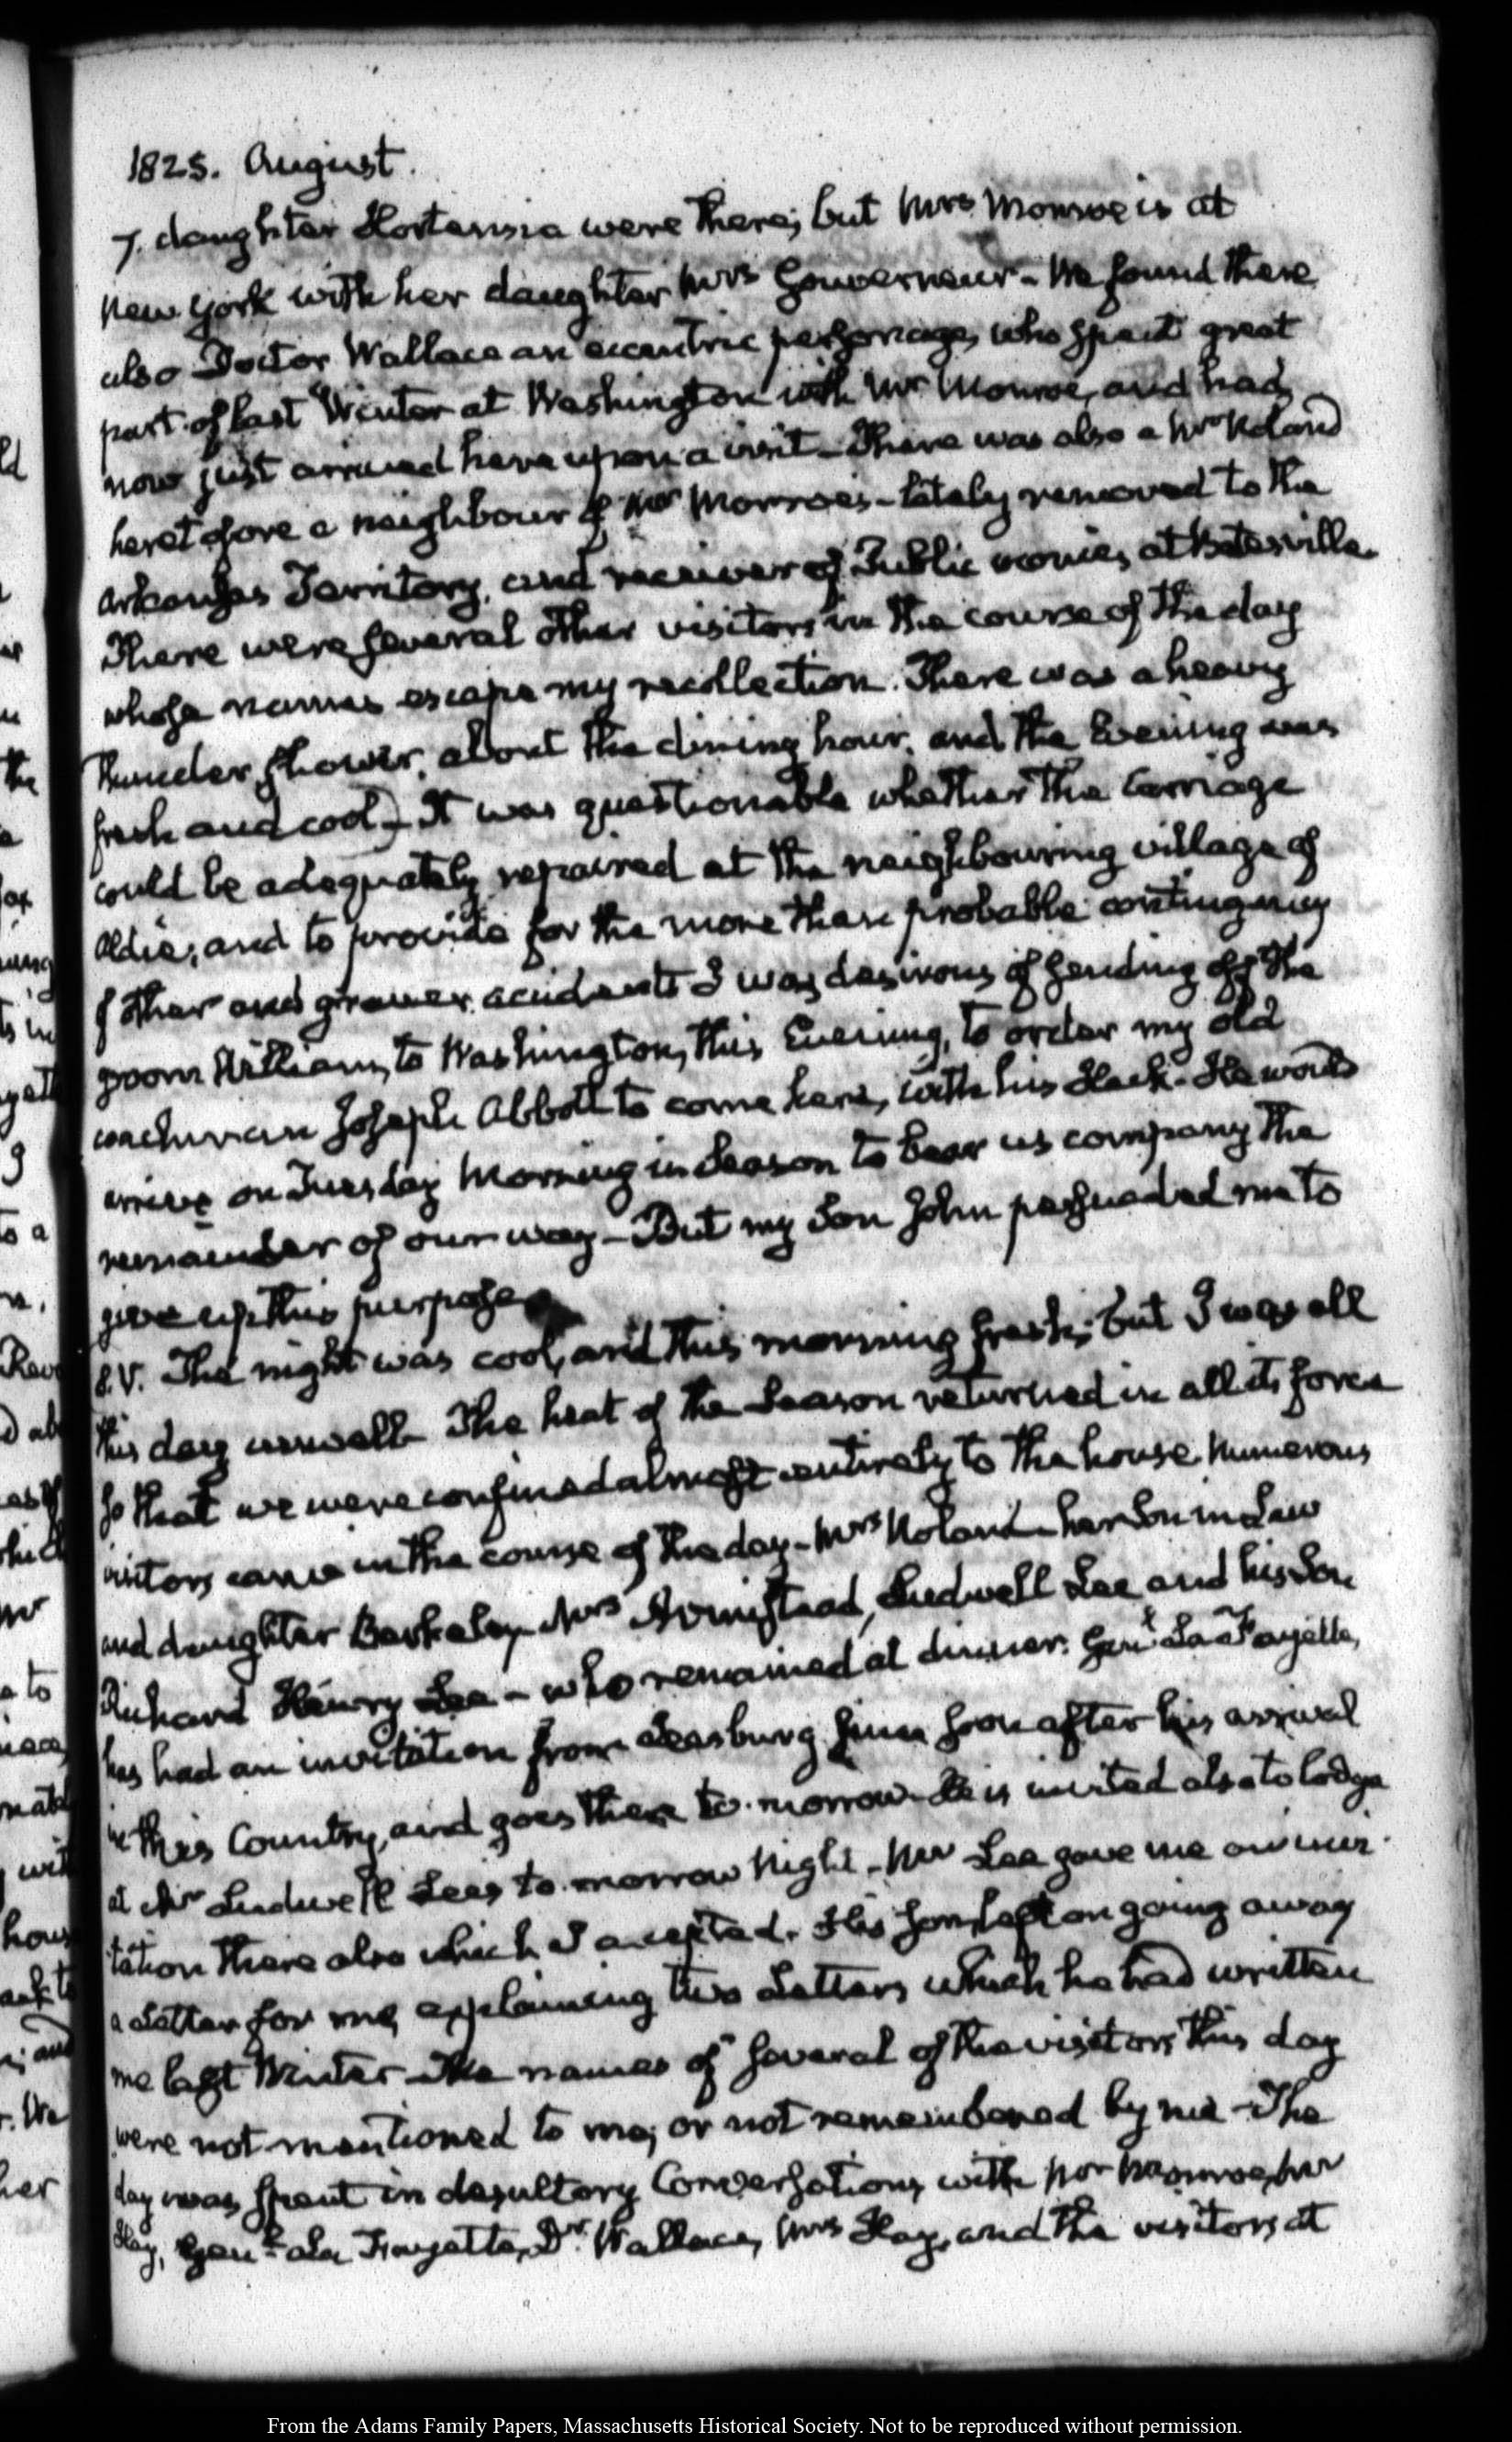 1825. August.
7. daughter Hortensia were there; but Mrs Monroe is at
New York with her daughter Mrs Gouverneur - We found there
also Doctor Wallace an eccentric personage, who spent great
part of last Winter at Washington with Mr Monroe, and had
now just arrived here upon a visit - There was also a Mr Noland
heretofore a neighbour of Mr Monroe's - lately removed to the
Arkansas Territory, and receiver of Public monies at Batesville.
There were several other visitors in the course of the day
whose names escape my recollection. There was a heavy
thunder shower, about the dining hour, and the Evening was
fresh and cool - It was questionable whether the Carriage
could be adequately repaired at the neighbouring village of
Aldie, and to provide for the more than probable contingency
of other and graver accidents I was desirous of sending off the
groom William, to Washington, this Evening, to order my old
coachman Joseph Abbott to come here, with his Hack. He would
arrive on Tuesday Morning in Season to bear us company the
remainder of our way - But my Son John persuaded me to
give up this purpose.
8. V. The night was cool, and this morning fresh; but I was all
this day unwell. The heat of the Season returned in all its force
so that we were confined almost entirely to the house. Numerous
visitors came in the course of the day - Mrs Noland - her Son in Law
and daughter Berkeley - Mrs Armistead, Ludwell Lee and his Son
Richard Henry Lee - who remained at dinner. Genl La Fayette,
has had an invitation from Leesburg since soon after his arrival
in this Country, and goes there to-morrow. He is invited also to lodge
at Mr Ludwell Lee's to-morrow Night - Mr Lee gave me an invi-
tation there also which I accepted. His Son, left on going away
a Letter for me, explaining two Letters which he had written
me last Winter - The names of several of the visitors this day
were not mentioned to me; or not remembered by me - The
day was spent in desultory Conversations with Mr Monroe, Mr
Hay, Genl La Fayette, Dr. Wallace, Mrs Hay, and the visitors at
From the Adams Family Papers, Massachusetts Historical Society. Not to be reproduced without permission.